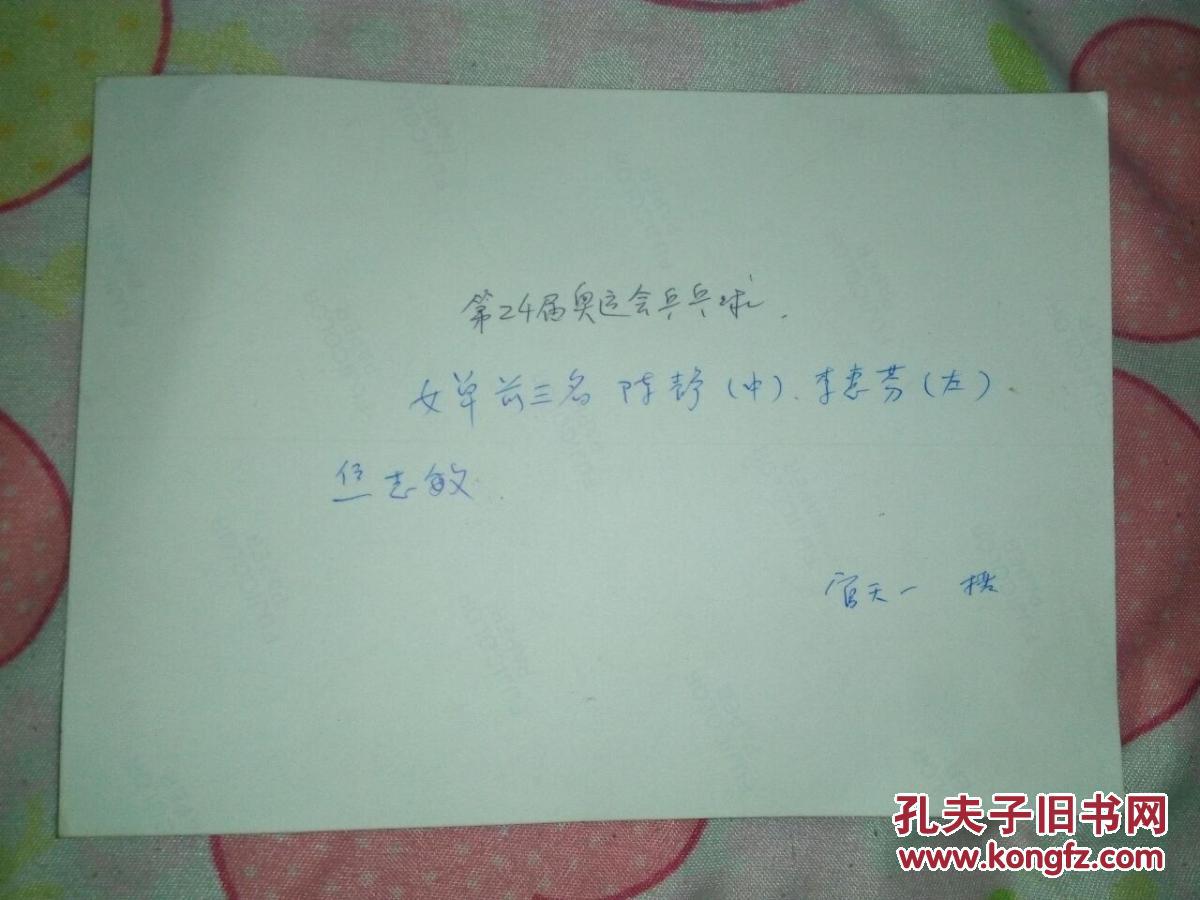 第24届奥运会乒乓球.
女单前三名 陈静(中)、李惠芬(左)
焦志敏.
官天一 摄
孔夫子旧书网
www.kongfz.com